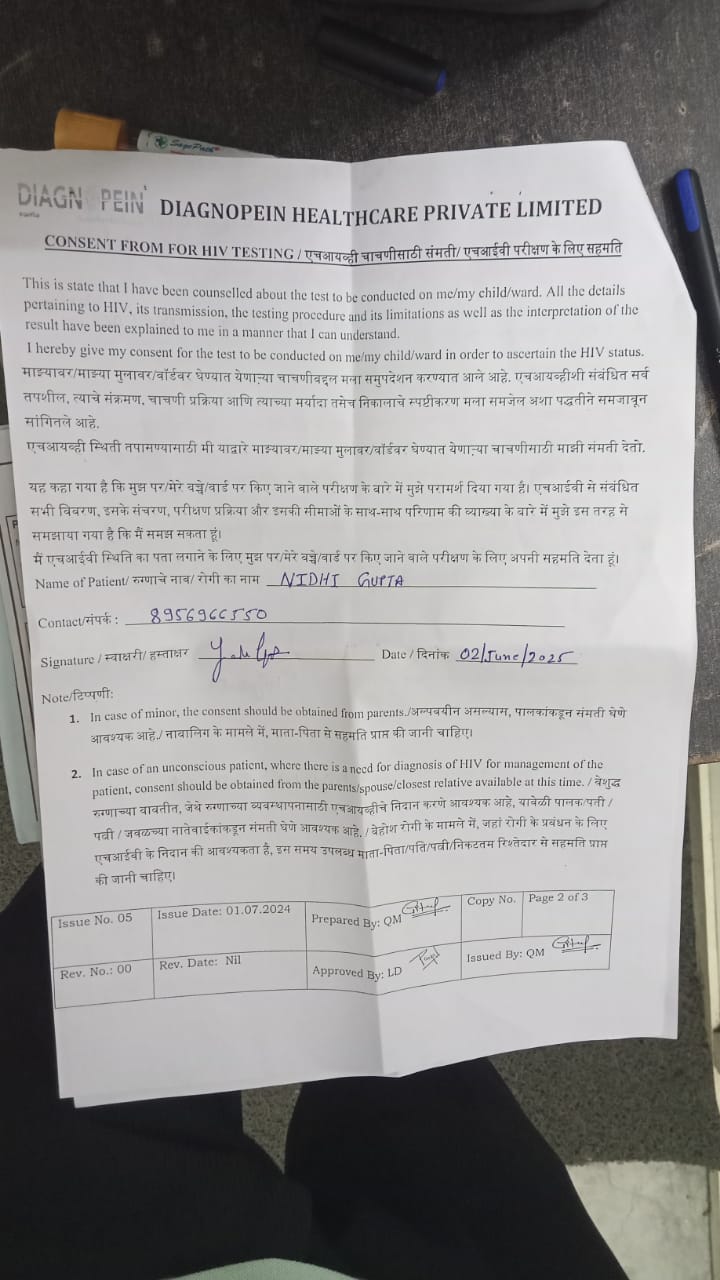 SagePath
DIAGN PEIN DIAGNOPEIN HEALTHCARE PRIVATE LIMITED
CONSENT FROM FOR HIV TESTING / एचआयव्ही चाचणीसाठी संमती/ एचआईवी परीक्षण के लिए सहमति
This is state that I have been counselled about the test to be conducted on me/my child/ward. All the details
pertaining to HIV, its transmission, the testing procedure and its limitations as well as the interpretation of the
result have been explained to me in a manner that I can understand.
I hereby give my consent for the test to be conducted on me/my child/ward in order to ascertain the HIV status.
माझ्यावर/माझ्या मुलावर/वॉर्डवर घेण्यात येणाऱ्या चाचणीबद्दल मला समुपदेशन करण्यात आले आहे. एचआयव्हीशी संबंधित सर्व
तपशील, त्याचे संक्रमण, चाचणी प्रक्रिया आणि त्याच्या मर्यादा तसेच निकालाचे स्पष्टीकरण मला समजेल अशा पद्धतीने समजावून
सांगितले आहे.
एचआयव्ही स्थिती तपासण्यासाठी मी याद्वारे माझ्यावर/माझ्या मुलावर/वॉर्डवर घेण्यात येणाऱ्या चाचणीसाठी माझी संमती देतो.
यह कहा गया है कि मुझ पर/मेरे बच्चे/वार्ड पर किए जाने वाले परीक्षण के बारे में मुझे परामर्श दिया गया है। एचआईवी से संबंधित
सभी विवरण, इसके संचरण, परीक्षण प्रक्रिया और इसकी सीमाओं के साथ-साथ परिणाम की व्याख्या के बारे में मुझे इस तरह से
समझाया गया है कि मैं समझ सकता हूं।
मैं एचआईवी स्थिति का पता लगाने के लिए मुझ पर/मेरे बच्चे/वार्ड पर किए जाने वाले परीक्षण के लिए अपनी सहमति देता हूं।
Name of Patient/ रुग्णाचे नाव/ रोगी का नाम NIDHI GUPTA
Contact/संपर्क : 8956966550
Signature / स्वाक्षरी/ हस्ताक्षर Date / दिनांक 02/June/2025
Note/टिप्पणी:
1. In case of minor, the consent should be obtained from parents./अल्पवयीन असल्यास, पालकांकडून संमती घेणे
आवश्यक आहे./ नाबालिग के मामले में, माता-पिता से सहमति प्राप्त की जानी चाहिए।
2. In case of an unconscious patient, where there is a need for diagnosis of HIV for management of the
patient, consent should be obtained from the parents/spouse/closest relative available at this time. / बेशुद्ध
रुग्णाच्या बाबतीत, जेथे रुग्णाच्या व्यवस्थापनासाठी एचआयव्हीचे निदान करणे आवश्यक आहे, यावेळी पालक/पती /
पत्नी / जवळच्या नातेवाईकांकडून संमती घेणे आवश्यक आहे. / बेहोश रोगी के मामले में, जहां रोगी के प्रबंधन के लिए
एचआईवी के निदान की आवश्यकता है, इस समय उपलब्ध माता-पिता/पति/पत्नी/निकटतम रिश्तेदार से सहमति प्राप्त
की जानी चाहिए।
Issue No. 05 Issue Date: 01.07.2024 Prepared By: QM Copy No. Page 2 of 3
Rev. No.: 00 Rev. Date: Nil Approved By: LD Issued By: QM